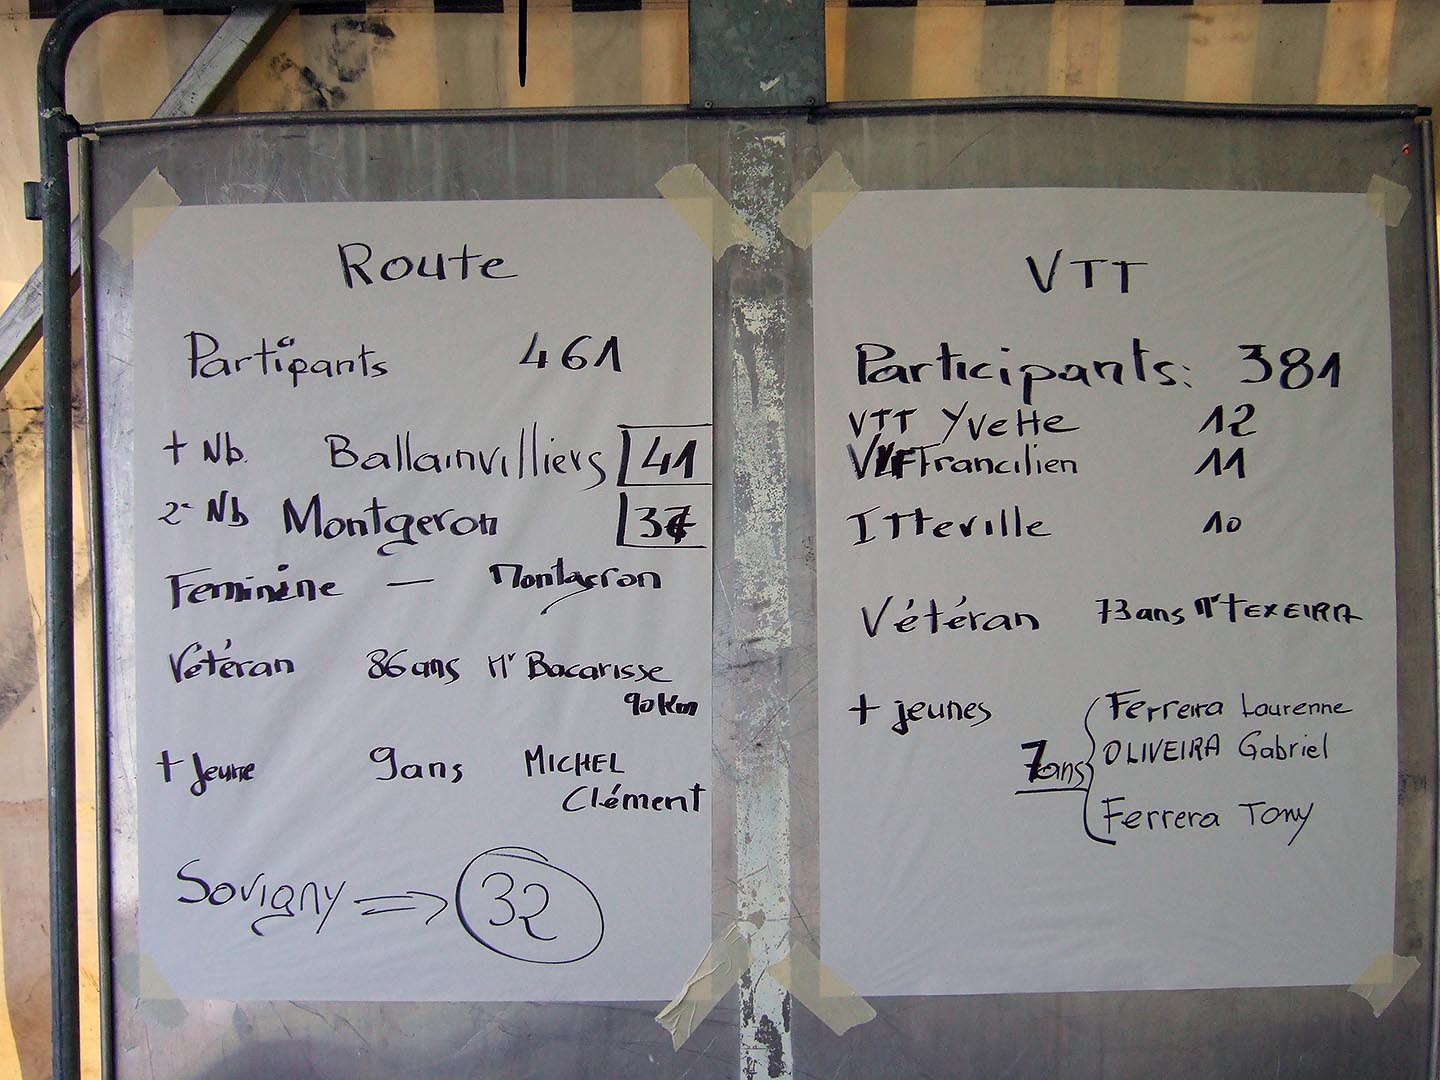 Route
Partipants 461
+ Nb. Ballainvilliers 41
2e Nb Montgeron
Feminine — Montgeron
Vétéran 86 ans Mr Bacarisse
90 km
+ Jeune 9 ans MICHEL
Clément
Sovigny => 32
VTT
Participants: 381
VTT Yvette 12
Francilien 11
Itteville 10
Vétéran 73 ans Mr TEXEIRA
+ jeunes Ferreira Laurenne
7 ans OLIVEIRA Gabriel
Ferrera Tony